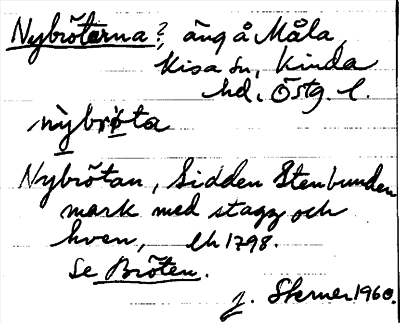 Nybröterna?, äng å Måla,
Kisa sn, Kinda
hd, Östg. l.
nỳbrøta
Nybrötan, Sidden Stenbunden
mark med stagg och
hven, Lh 1798.
Se Bröten.
J. Sterner 1960.